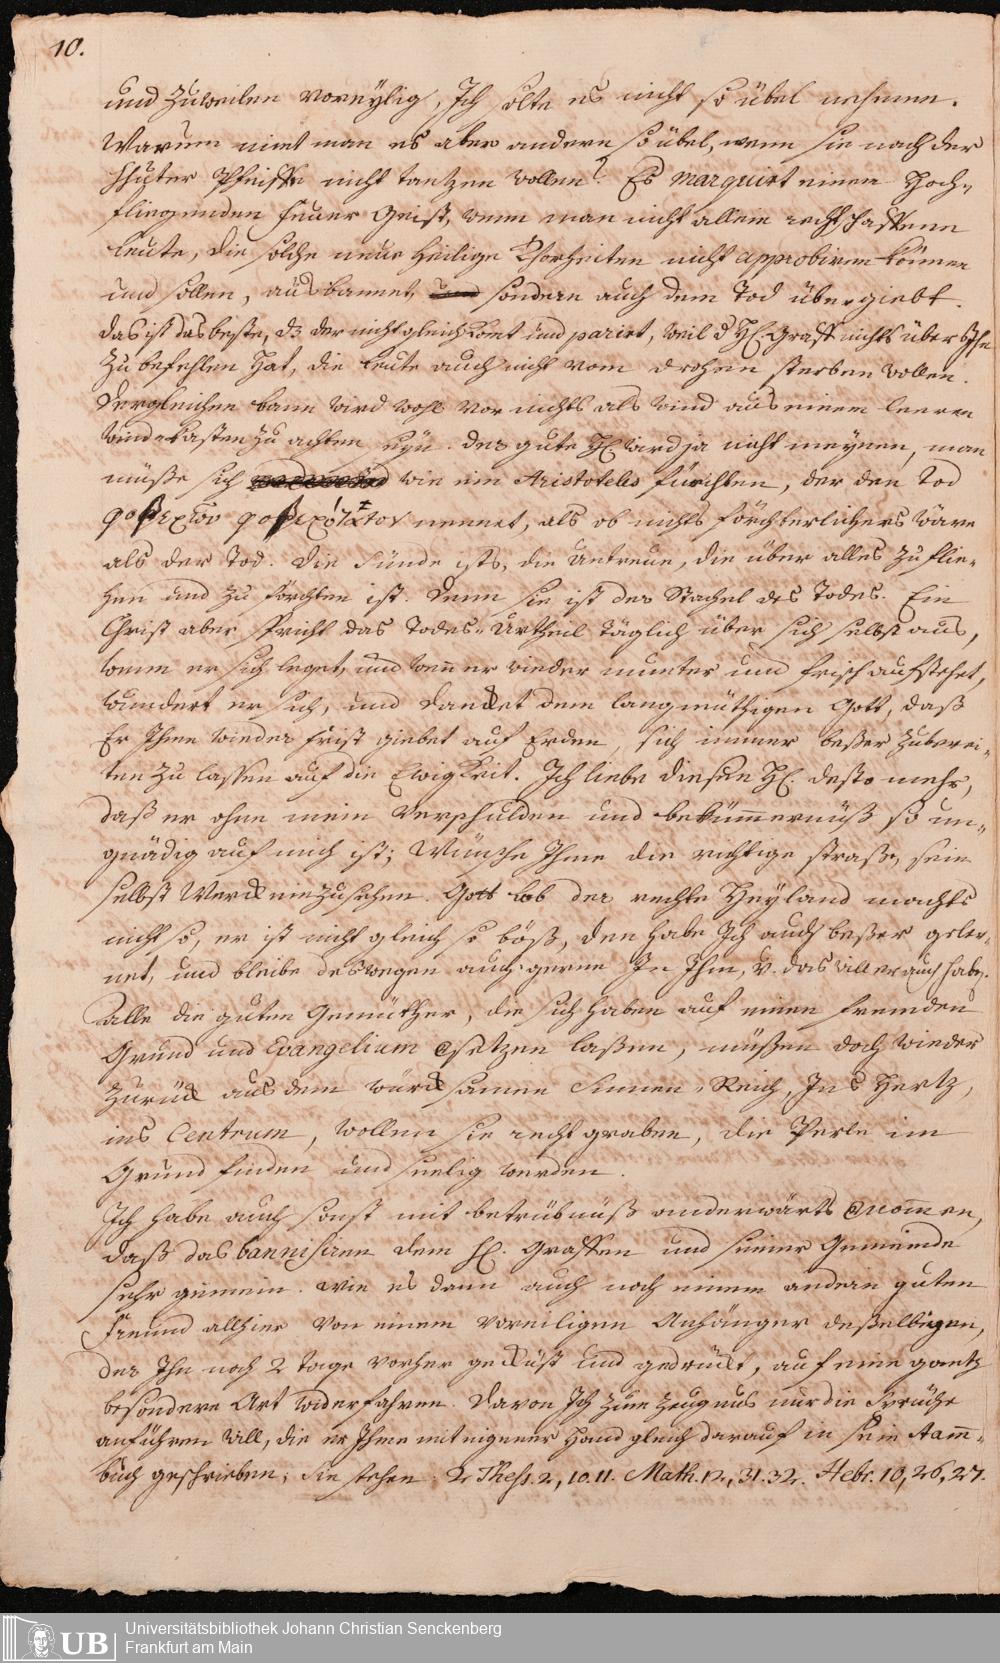 10.
und zuweilen voreylig, Ich solte es nicht so übel nehmen.
Warum nimt man es aber andern so übel, wenn sie nach der
Hhuter Pfeiffe nicht tantzen wollen? Es marquirt einen Hoch-
fliegenden feuer Geist, wenn man nicht allein rechtschaffene
Leute, die solche neue Heilige Thorheiten nicht approbiren können
und sollen, ausbannet, sondern auch dem Tod übergiebt.
das ist das beste, dz der nicht gleich komt und parirt, weil d H. Graff nichts über Ihn
zu befehlen hat, die Leute auch nicht vom drohen sterben wollen.
Dergleichen bann wird wohl vor nichts als wind aus einem leeren
windkasten zu achten seyn. der gute H. wird ja nicht meynen, man
müße sich wie ein Aristoteles fürchten, der den Tod
φοβερῶν φοβερώτατον nennet, als ob nichts förchterlichers wäre
als der Tod. die Sünde ists, die Untreue, die über alles zu flie-
hen und zu förchten ist. Denn sie ist der Stachel des Todes. Ein
Christ aber spricht das Todes-Urtheil täglich über sich selbst aus,
wenn er sich leget, und wenn er wieder munter und frisch aufstehet,
wundert er sich, und dancket dem langmüthigen Gott, daß
Er Ihme wieder frist giebet auf Erden, sich immer beßer zuberei-
ten zu lassen auf die Ewigkeit. Ich liebe diesen H. desto mehr,
daß er ohne mein Verschulden und bekümmernüß so un-
gnädig auf mich ist; Wünsche Ihme die richtige straße, sein
selbst Werck einzusehen. Gott lob der rechte Heyland machts
nicht so, er ist nicht gleich so böß, den habe Ich auch beßer geler-
net, und bleibe deswegen auch gerne In Ihm, u. das will er auch haben.
Alle die guten Gemüther, die sich haben auf einen fremden
Grund und Evangelium setzen laßen, müßen doch wieder
zurück aus dem würcksamen Sinnen-Reich, Ins Hertz,
ins Centrum, wollen sie recht graben, die Perle im
Grund finden und seelig werden.
Ich habe auch sonst mit betrübnüß anderwärts vernommen,
daß das bannisiren dem H. Graffen und seiner Gemeinde
sehr gemein. wie es dann auch noch einem andern guten
Freund allhier von einem voreiligen Anhänger deßelbigen,
der Ihn noch 2 tage vorher geküst und gedrückt, auf eine gantz
besondere Art widerfahren. Davon Ich zum Zeugnus nur die Sprüche
anführen will, die er Ihme mit eigener Hand gleich darauf in sein Stamm-
buch geschrieben; Sie stehen 2 Thess. 2, 10. 11. Math. 12, 31. 32. Hebr. 10, 26, 27.
UB
Universitätsbibliothek Johann Christian Senckenberg
Frankfurt am Main